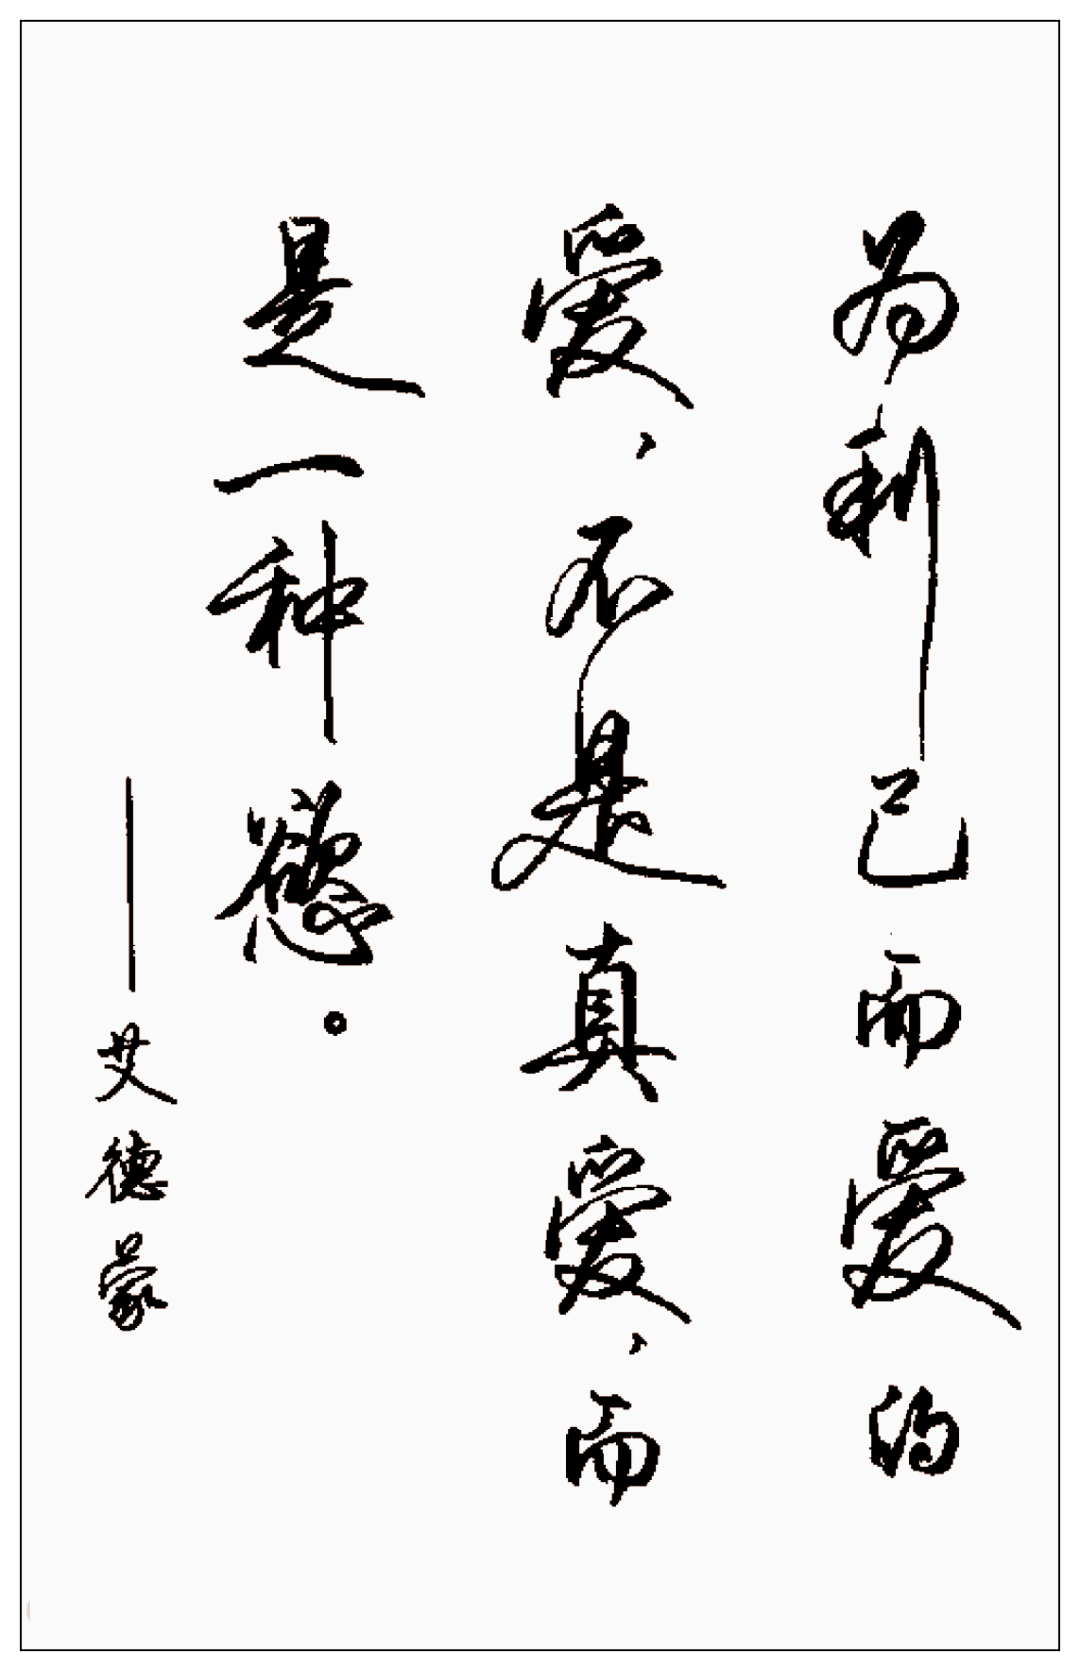 为利己而爱的
爱，不是真爱，而
是一种慾。
——艾德蒙